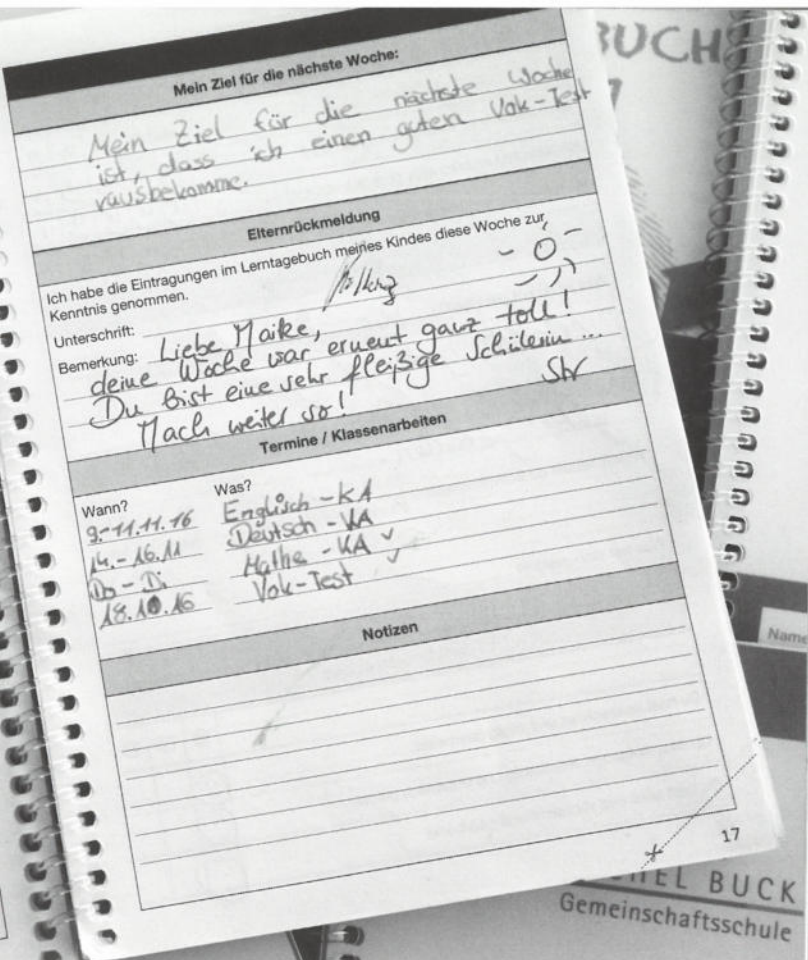 Mein Ziel für die nächste Woche:
Mein Ziel für die nächste Woche
ist, dass ich einen guten Vok-Test
rausbekomme.
Elternrückmeldung
Ich habe die Eintragungen im Lerntagebuch meines Kindes diese Woche zur
Kenntnis genommen.
Unterschrift:
Bemerkung: Liebe Maike,
deine Woche war erneut ganz toll!
Du bist eine sehr fleißige Schülerin ...
Mach weiter so!
Termine / Klassenarbeiten
Wann? Was?
9.-11.11.16 Englisch - KA
14.-16.11 Deutsch - KA
Do - Di Mathe - KA ✓
18.10.16 Vok-Test ✓
Notizen
17
BUCH
Name
BUCK
Gemeinschaftsschule